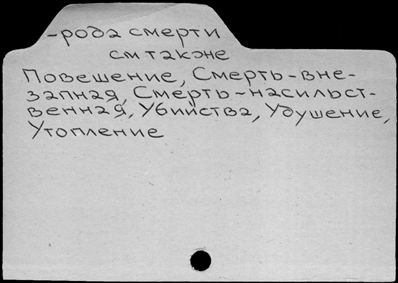 -рода смерти
см также
Повешение, Смерть-вне-
запная, Смерть-насильст-
венная, Убийства, Удушение,
Утопление